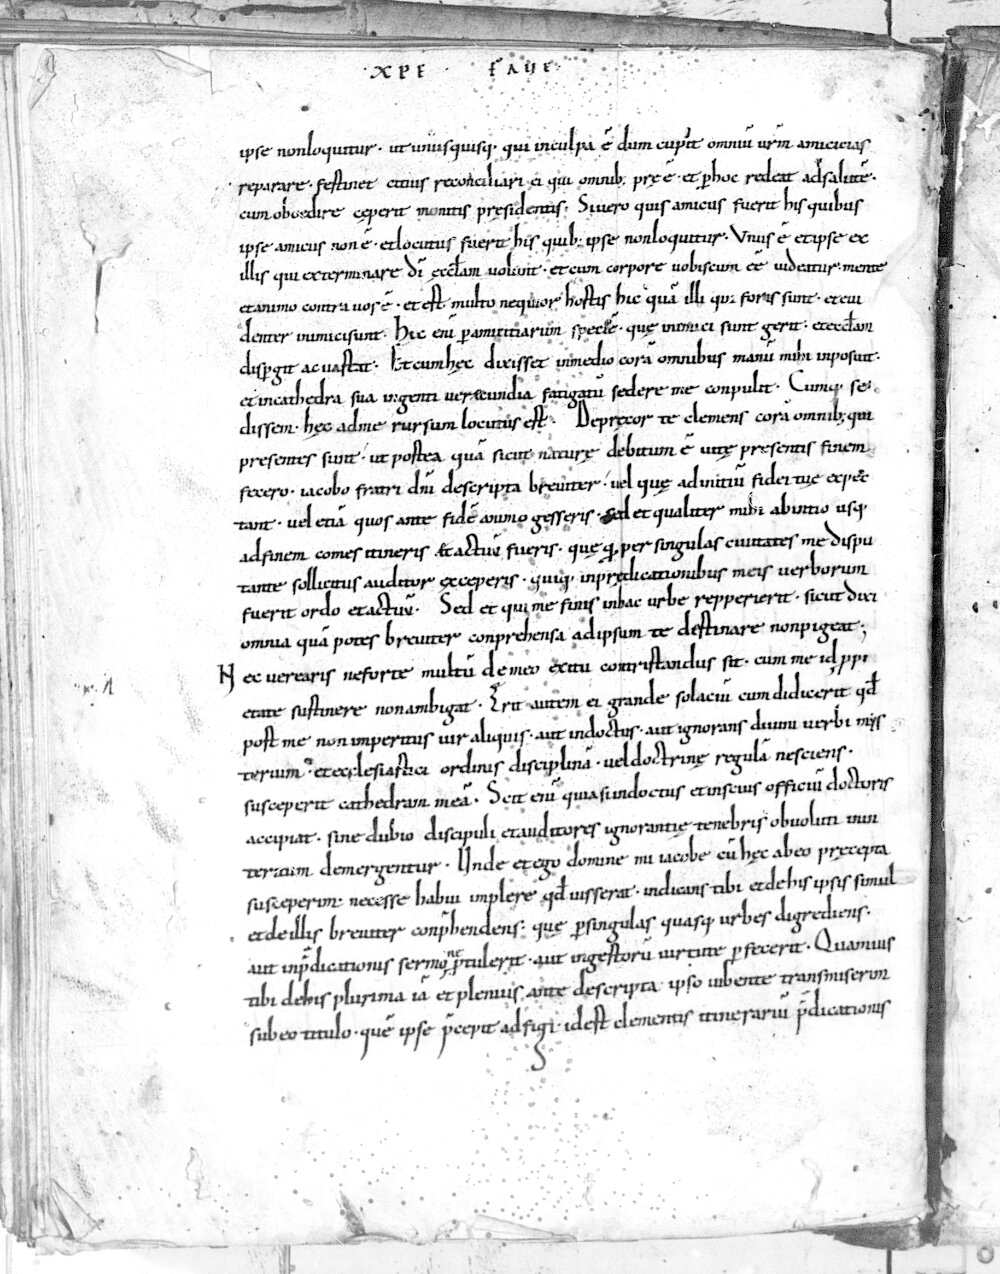 · XPE · FAUE ·
ipse nonloquitur · ut unusquisq; qui inculpa ē dum cupit omniū urm̄ amicicias
reparare · festinet citius reconciliari ei qui omnib; pręē · et ꝑhoc redeat adsalutē ·
cum oboedire cęperit monitis pręsidentis · Sivero quis amicus fuerit his quibus
ipse amicus non ē · etlocutus fuerit his quib; ipse nonloquitur · Vnus ē etipse ex
illis qui exterminare dī ęccłam volunt · etcum corpore vobiscum eē videatur · mente
etanimo contra vos ē · et est multo nequior hostis hic quā illi qui foris sunt · etevi
denter inimicisunt · Hic enī ꝑamicitiarum speciē · quę inimici sunt gerit · eteccłam
disꝑgit ac vastat · Et cumhęc dixisset inmedio corā omnibus manū mihi inposuit ·
et incathedra sua ingenti verecundia fatigatū sedere me conpulit · Cumq; se
dissem · hęc adme rursum locutus est · Depręcor te clemens corā omnib; qui
presentes sunt · ut postea quā sicut naturę debitum ē vitę presentis finem
fecero · iacobo fratri dnī descripta breviter · vel quę adinitiū fidei tuę expec
tant · vel etiā quos ante fidē animo gesseris · sed et qualiter mihi abinitio usq;
adfinem comes itineris et actuū fueris · quę q; per singulas civitates me dispu
tante sollicitus auditor exceperis · quiq; inprędicationibus meis verborum
fuerit ordo et actuū · Sed et qui me finis inhac urbe reppererit · sicut dixi
omnia quā potes breviter conprehensa adipsum te destinare nonpigeat ;
Nec verearis neforte multū demeo exitu contristandus sit · cum me id ppi
etate sustinere nonambigat · Erit autem ei grande solaciū cum didicerit qđ
post me non imperitus vir aliquis · aut indoctus · aut ignorans divini verbi mys
terium · et ecclesiastici ordinis disciplinā · vel doctrinę regulā nesciens ·
susceperit cathedram meā · Scit enī quiasiindoctus et inscius officiū doctoris
accipiat · sine dubio discipuli et auditores ignorantię tenebris obvoluti inin
teritum demergentur · Unde et ego domine mi iacobe cū hęc abeo pręcepta
susceperim · necesse habui implere qđ iusserat · indicans tibi et dehis ipsis simul
et deillis breviter conp̄hendens · quę ꝑsingulas quasq; urbes digrediens ·
aut inp̄dicationis sermone p̄tulerit · aut ingestorū virtute ꝑfecerit · Quamvis
tibi dehis plurima iā et plenius ante descripta ipso iubente transmiserim
subeo titulo · quē ipse p̄cepit adfigi · idest clementis itinerariū p̄dicationis